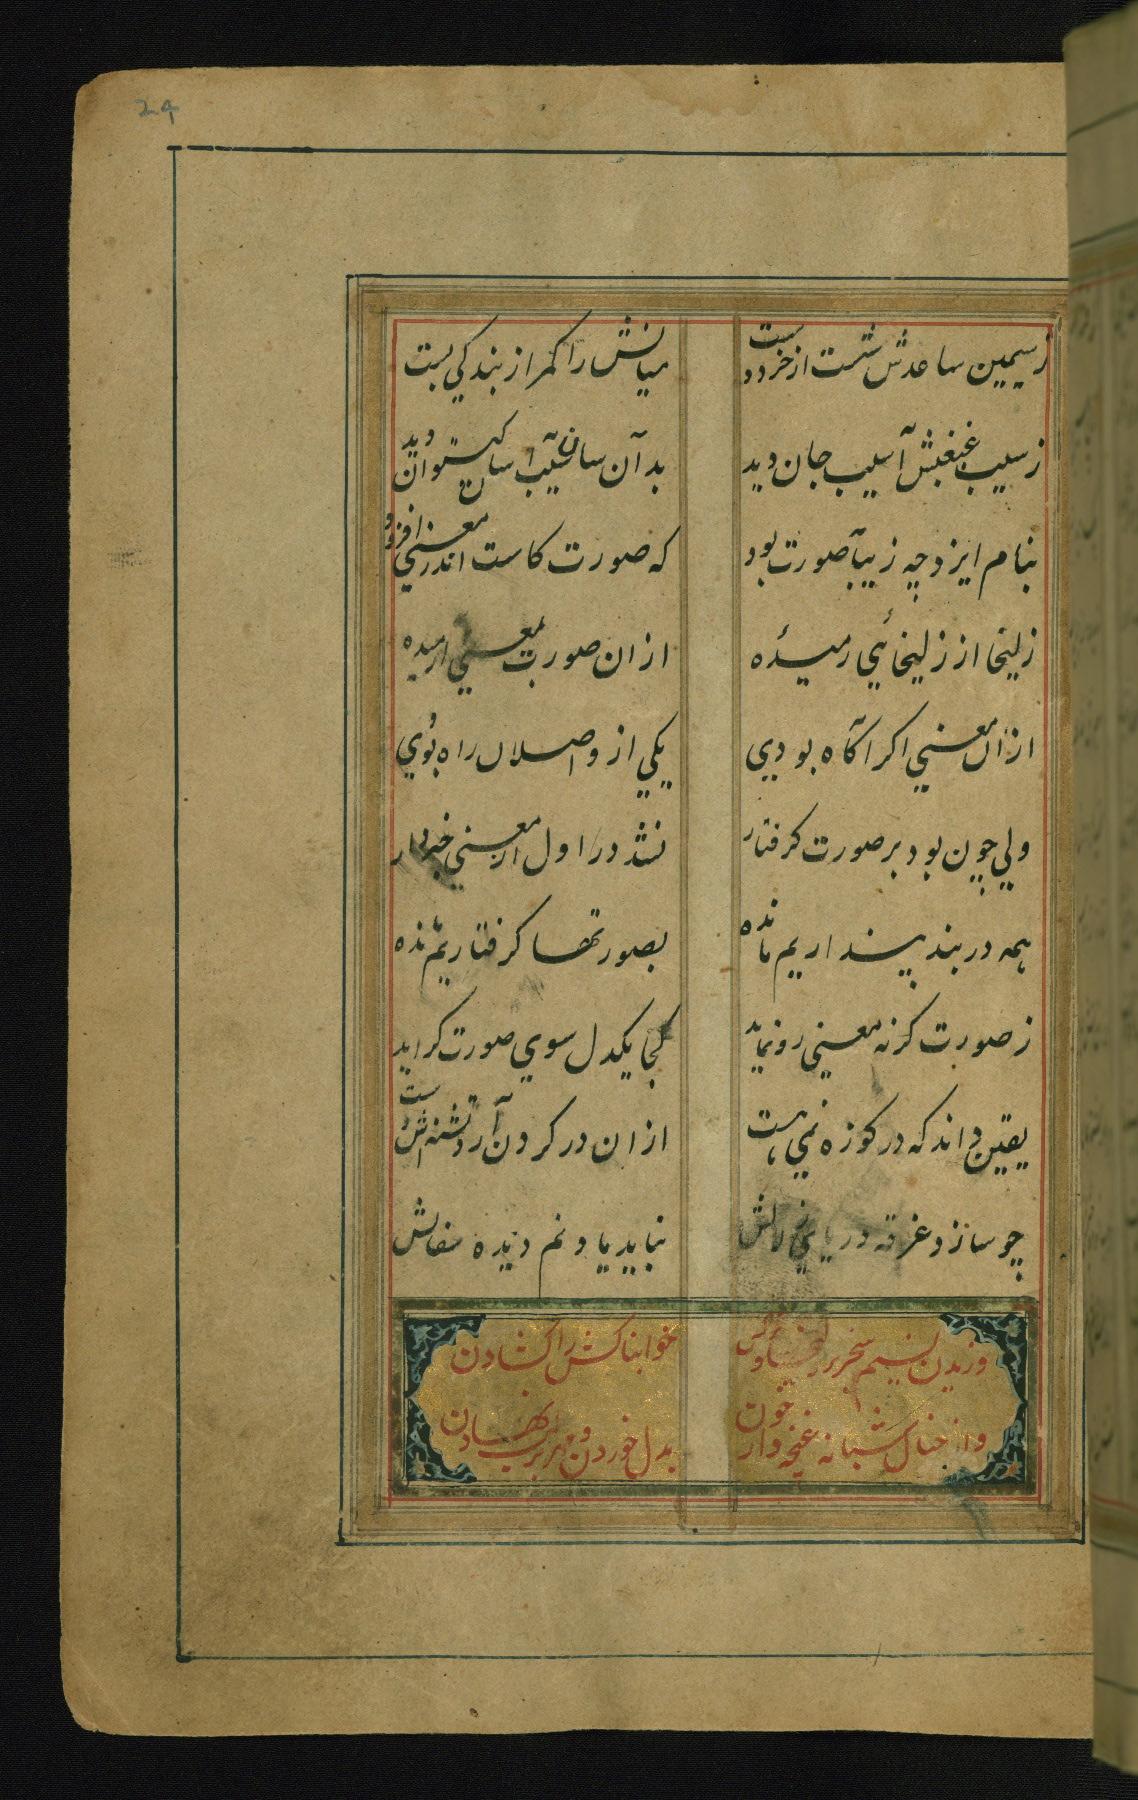 24
ز سیمین ساعدش شست از خرد دست
میانش را کمر از بندکی بست
ز سیب غبغبش آسیب جان دید
بدآن سان سیب آسان کی توان دید
بنام ایزد چه زیبا صورت بود
که صورت کاست اندر معنی افزود
زلیخا از زلیخائی رمیده
ازان صورت بمعنی آرمیده
ازان معنی اکر آکاه بودی
یکی از واصلان راه بودی
ولی چون بود بر صورت کرفتار
نشد در اول از معنی خبردار
همه در بند پنداریم مانده
بصورتها کرفتاریم مانده
ز صورت کرنه معنی رو نماید
کجا یکدل سوی صورت کراید
یقین داند که در کوزه نمی هست
ازان در کردن آرد تشنه اش دست
چو سازد غرقه دریای زلالش
نیاید یاد نم دیده سفالش
وزیدن نسیم سحر بر زلیخا و نرکس
خوابناکش را کشادن
و از خیال شبانه غنچه وار خون
بدل خوردن و مهر بر لب نهادن